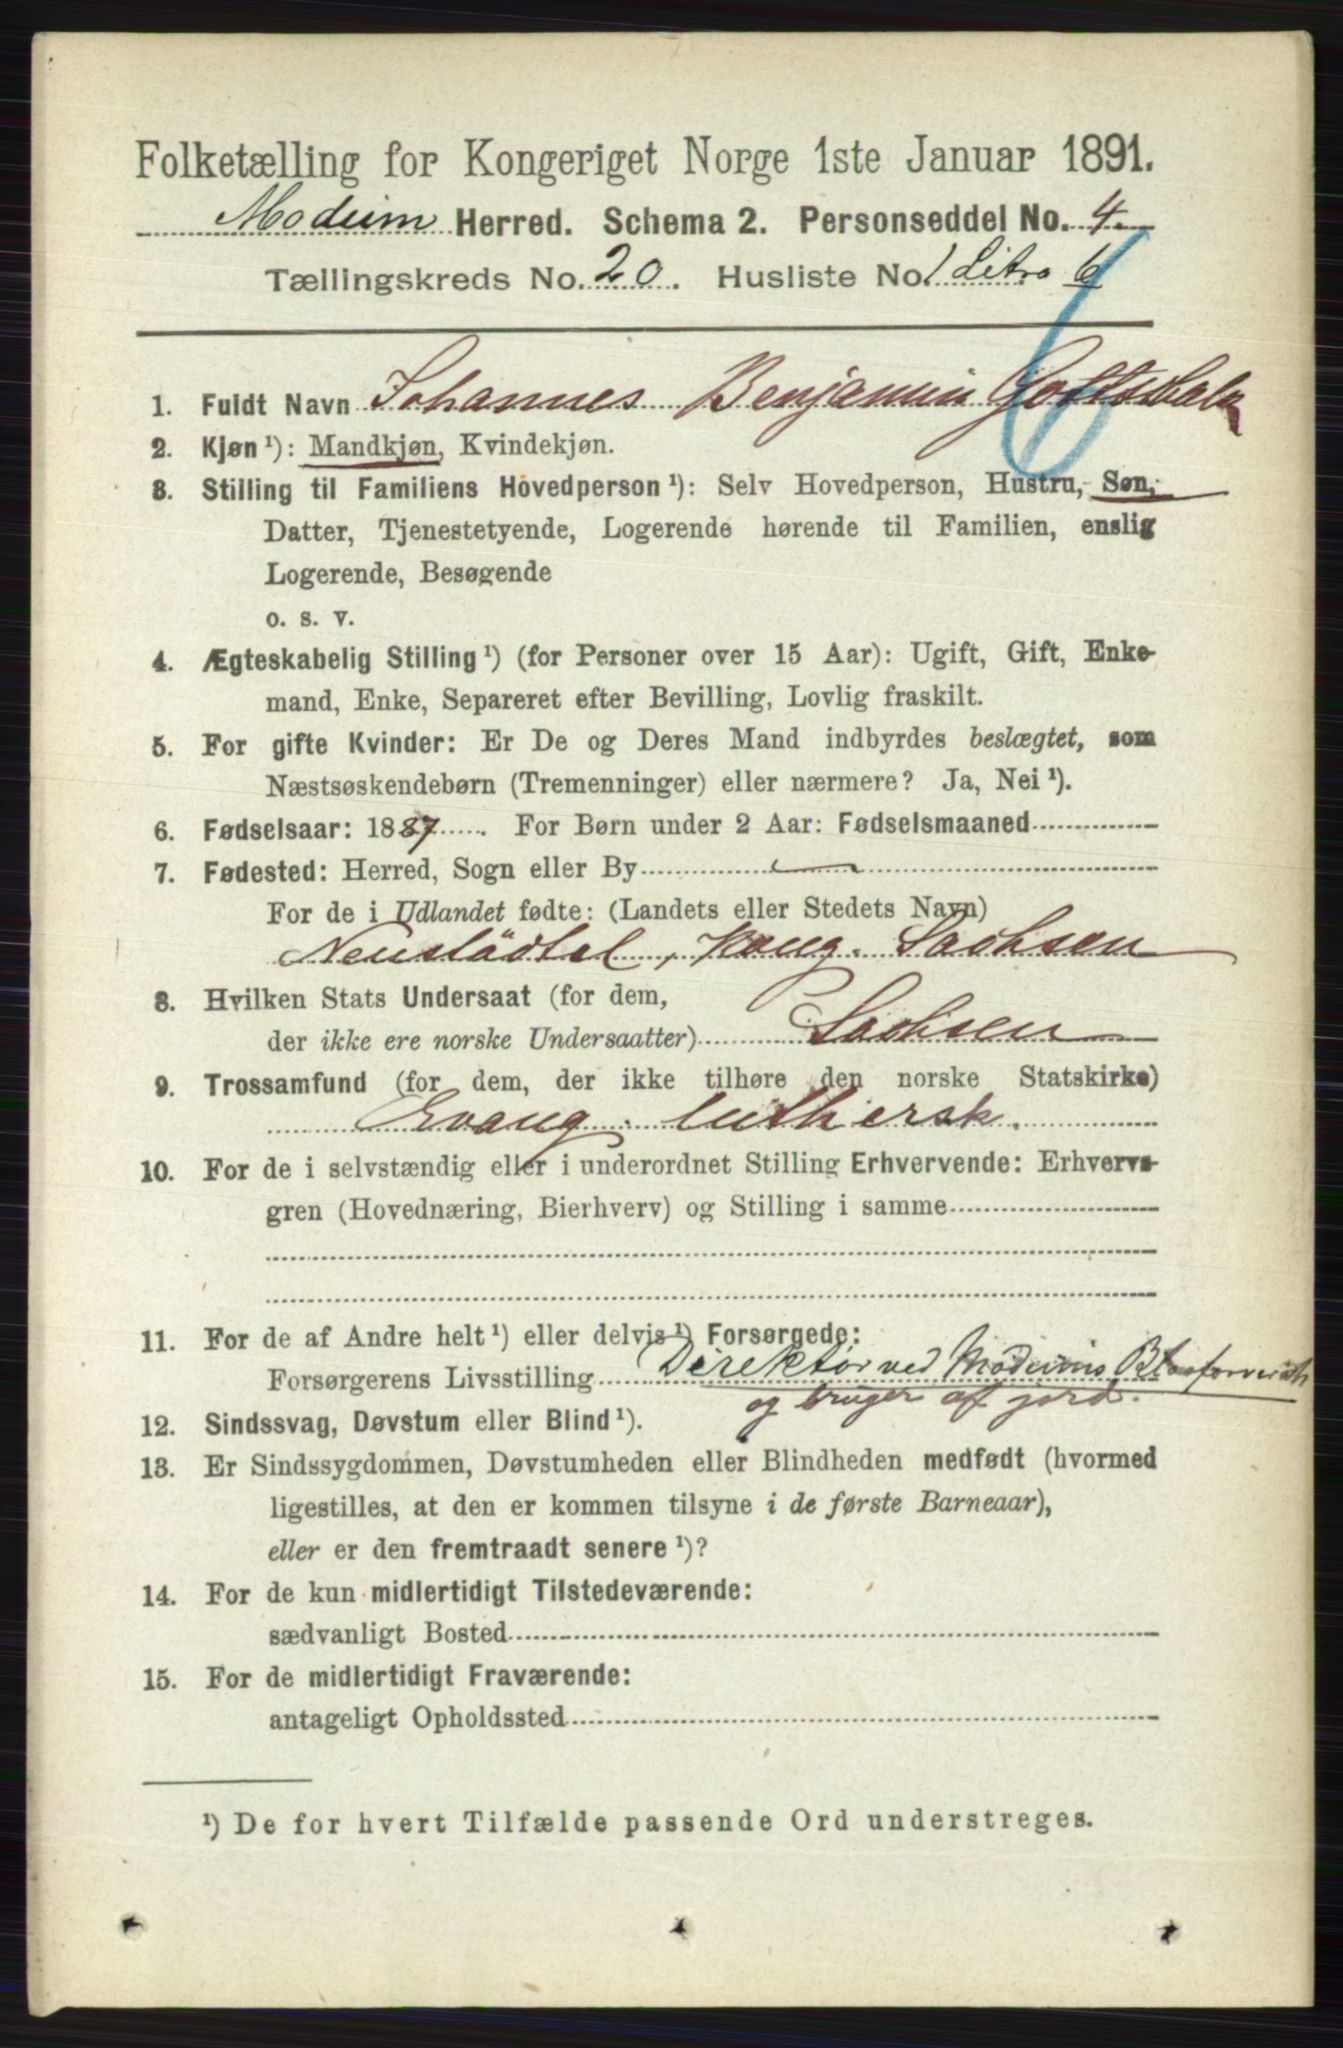 Folketælling for Kongeriget Norge 1ste Januar 1891.
Modum Herred. Schema 2. Personseddel No. 4.
Tællingskreds No. 20. Husliste No. 1 Litra b
1. Fuldt Navn Johannes Benjamin
2. Kjøn ¹): Mandkjøn, Kvindekjøn.
3. Stilling til Familiens Hovedperson ¹): Selv Hovedperson, Hustru, Søn,
Datter, Tjenestetyende, Logerende hørende til Familien, enslig
Logerende, Besøgende
o. s. v.
4. Ægteskabelig Stilling ¹) (for Personer over 15 Aar): Ugift, Gift, Enke-
mand, Enke, Separeret efter Bevilling, Lovlig fraskilt.
5. For gifte Kvinder: Er De og Deres Mand indbyrdes beslægtet, som
Næstsøskendebørn (Tremenninger) eller nærmere? Ja, Nei ¹).
6. Fødselsaar: 1887. For Børn under 2 Aar: Fødselsmaaned
7. Fødested: Herred, Sogn eller By
For de i Udlandet fødte: (Landets eller Stedets Navn)
Neustädtel, Kong. Sachsen
8. Hvilken Stats Undersaat (for dem,
der ikke ere norske Undersaatter) Sachsen
9. Trossamfund (for dem, der ikke tilhøre den norske Statskirke)
Evang. luthersk.
10. For de i selvstændig eller i underordnet Stilling Erhvervende: Erhvervs-
gren (Hovednæring, Bierhverv) og Stilling i samme
11. For de af Andre helt ¹) eller delvis ¹) Forsørgede:
Forsørgerens Livsstilling Direktør ved Modums
og bruger af jord.
12. Sindssvag, Døvstum eller Blind ¹).
13. Er Sindssygdommen, Døvstumheden eller Blindheden medfødt (hvormed
ligestilles, at den er kommen tilsyne i de første Barneaar),
eller er den fremtraadt senere ¹)?
14. For de kun midlertidigt Tilstedeværende:
sædvanligt Bosted
15. For de midlertidigt Fraværende:
antageligt Opholdssted
¹) De for hvert Tilfælde passende Ord understreges.